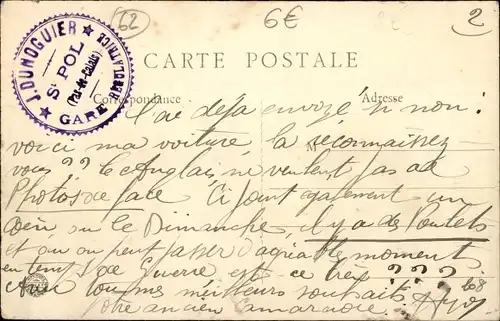 62
6€
2
J. DUMOGUIER
St POL
(Pas-de-Calais)
GARE RÉGULATRICE
CARTE POSTALE
Correspondance
Adresse
déjà envoyé si non :
voici ma voiture la reconnaissez
vous ?? le Anglais ne veulent pas de
Photos de face Ci joint également un
ou le Dimanche, il y a des
et où on peut passer d'agréables moments
en temps de Guerre est ce très ? ? ?
tous mes meilleurs souhaits
Votre ancien Camarade